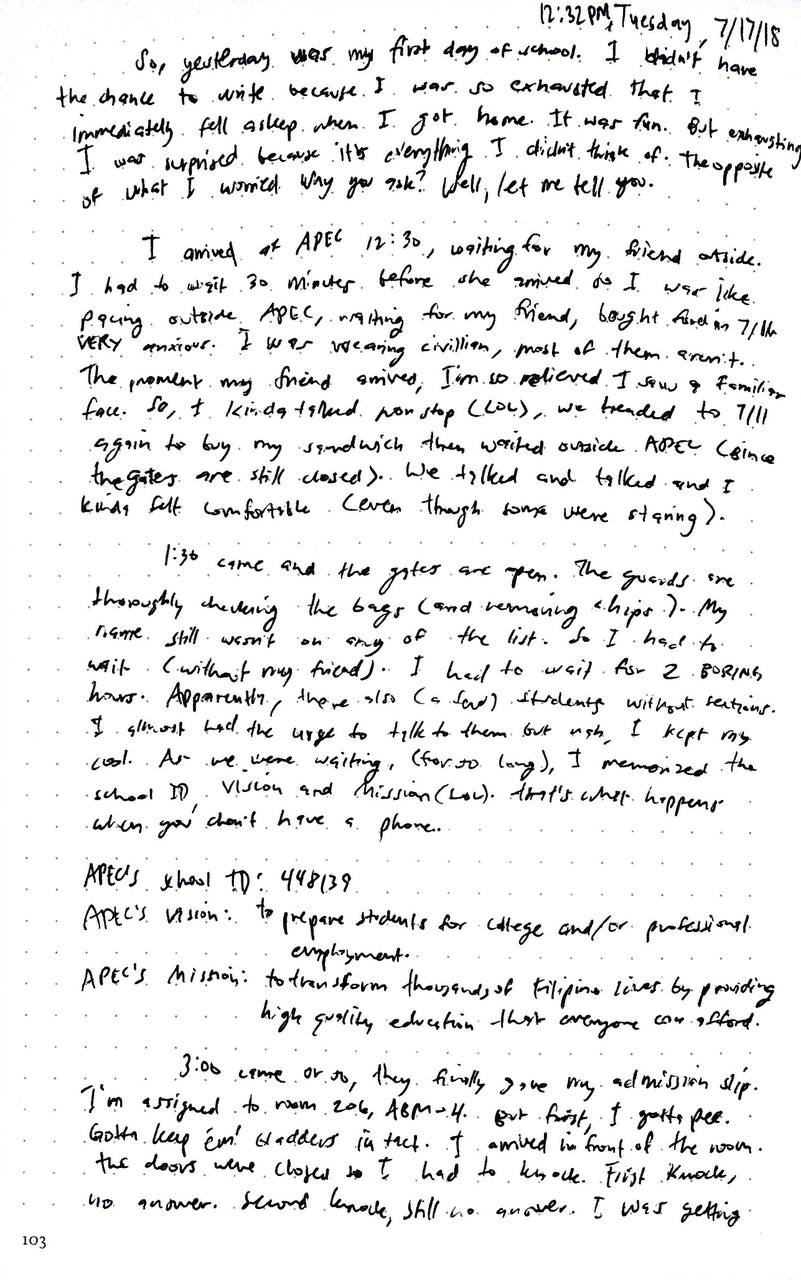 12:32PM, Tuesday, 7/17/18
So, yesterday was my first day of school. I didn't have
the chance to write because I was so exhausted that I
immediately fell asleep when I got home. It was fun. But exhausting
I was surprised because it's everything I didn't think of. The opposite
of what I worried. Why you ask? Well, let me tell you.
I arrived at APEC 12:30, waiting for my friend outside.
I had to wait 30 minutes before she arrived so I was like
pacing outside APEC, waiting for my friend, bought food in 7/11.
VERY anxious. I was wearing civillian, most of them aren't.
The moment my friend arrived, I'm so relieved I saw a familiar
face. So, I kinda talked non stop (LOL), we treaded to 7/11
again to buy my sandwich then waited outside APEC (since
the gates are still closed). We talked and talked and I
kinda felt comfortable (even though some were staring).
1:30 came and the gates are open. The guards are
thoroughly checking the bags (and removing chips). My
name still wasn't on any of the list. So I had to
wait (without my friend). I had to wait for 2 BORING
hours. Apparently, there also (a few) students without sections.
I almost had the urge to talk to them but ugh, I kept my
cool. As we were waiting, (for so long), I memorized the
school ID, Vision and Mission (LOL). That's what happens
when you don't have a phone..
APEC's school ID: 448139
APEC's Vision: to prepare students for college and/or professional
employment.
APEC's Mission: to transform thousands of Filipino lives by providing
high quality education that everyone can afford.
3:00 came or so, they finally gave my admission slip.
I'm assigned to room 206, ABM-4. But first, I gotta pee.
Gotta keep 'em' bladders in tact. I arrived in front of the room.
the doors were closed so I had to knock. First knock,
no answer. Second knock, still no answer. I was getting
103